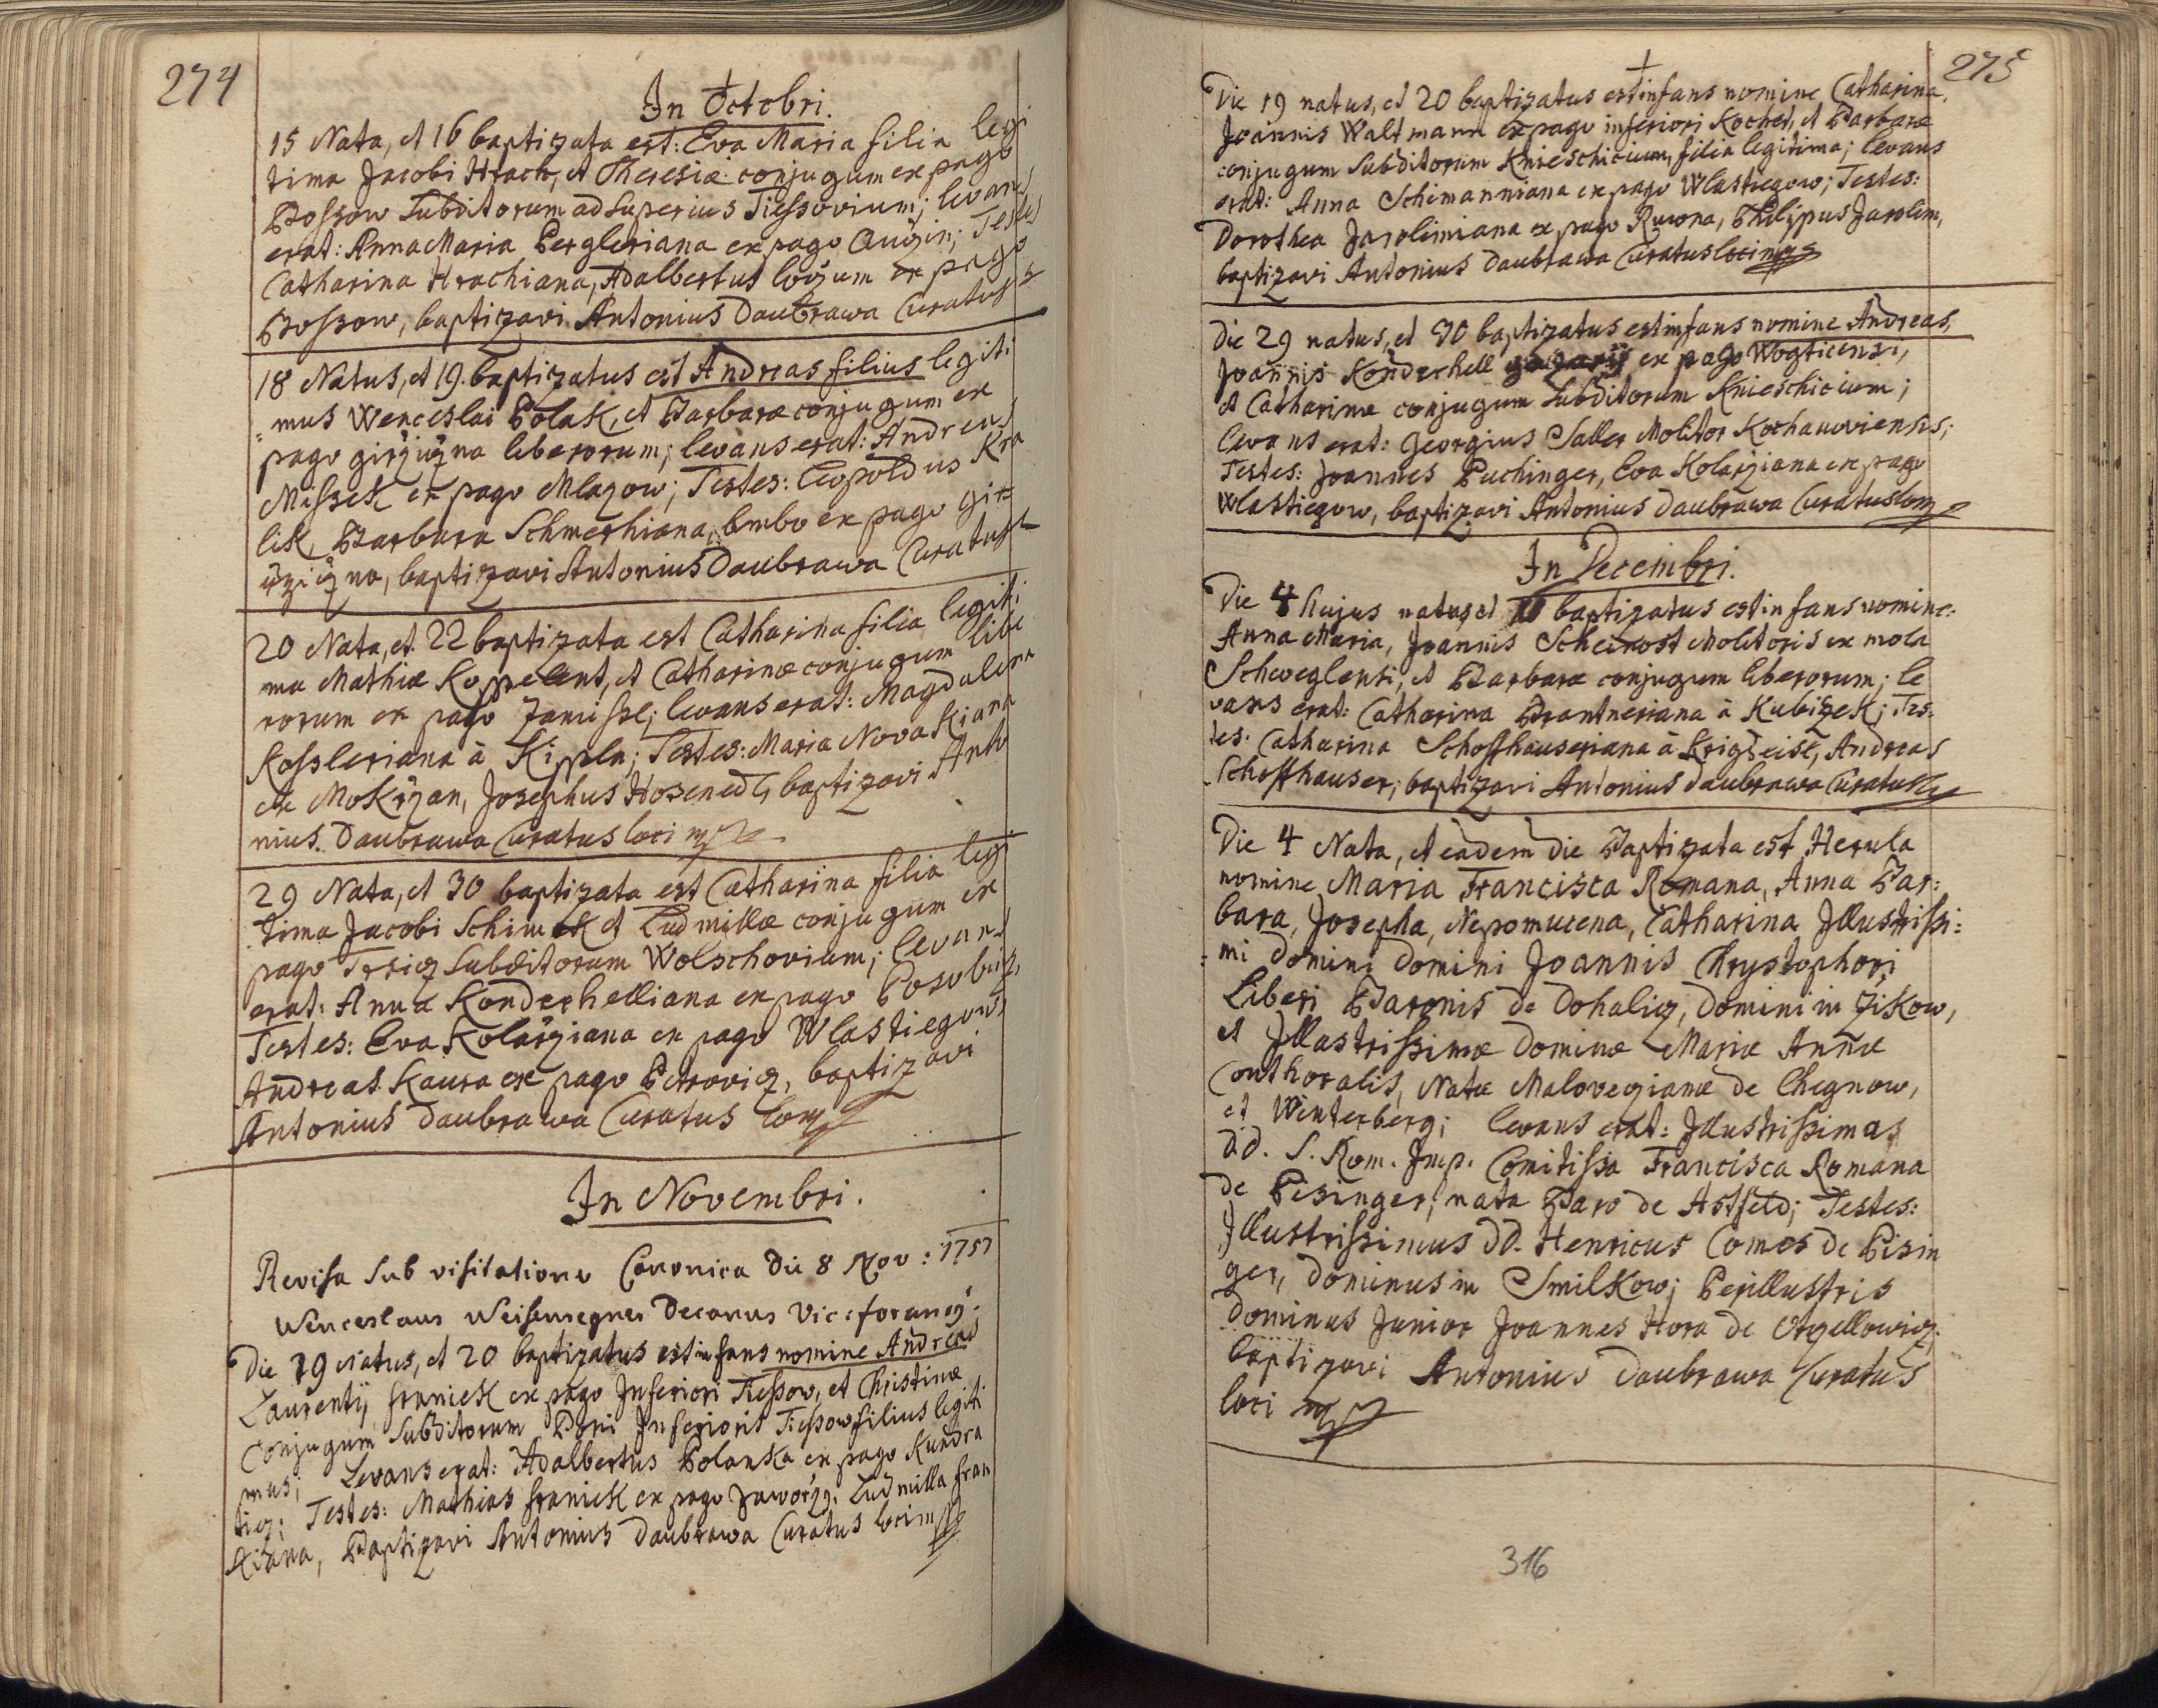 274
In Octobri.
15 Nata, et 16 baptizata est: Eva Maria filia legi
tima Jacobi Hrach, et Theresiæ conjugum ex pago
Bossow Subditorum ad Superius Tiessovium; levans
erat: Anna Maria Pergleriana ex pago Augin; Testes
Catharina Hrachiana, Adalbertus ex pago
Bossow, baptizavi Antonius Daubrawa Curatus
18 Natus, et 19. baptizatus est Andreas filius legiti
mus Wenceslai Polak, et Barbaræ conjugum ex
pago liberorum; levans erat: Andreas
Missek ex pago Mlazow; Testes: Leopoldus Kra
lik, Barbara Schmerhiana, ambo ex pago
baptizavi Antonius Daubrawa Curatus
20 Nata, et 22 baptizata est Catharina filia legiti
ma Mathiæ Koppelent, et Catharinæ conjugum libe
rorum ex pago Zamissl; levans erat: Magdalena
Rossleriana à Kippln; Testes: Maria Novakiana
ex Mokržan, Josephus Hosenedl, baptizavi Anto
nius Daubrawa Curatus loci
29 Nata, et 30 baptizata est Catharina filia legi
tima Jacobi Schimek et Ludmillæ conjugum ex
pago Trsicz Subditorum Wolschovium; levans
erat: Anna Konderhelliana ex pago Posobicz,
Testes: Eva Kolaržiana ex pago Wlastiegow,
Andreas Kaura ex pago Petrovicz, baptizavi
Antonius Daubrawa Curatus loci
In Novembri.
Revisa Sub visitatione Canonica Die 8 Nov: 1757
Wenceslaus Weisenregner Decanus Vic: foraneus
Die 19 Natus, et 20 baptizatus est infans nomine Andreas
Laurentij Franiek ex pago Inferiori Tiessow, et Christinæ
Conjugum Subditorum Dnii Inferioris Tiessow filius legiti
mus; Levans erat: Adalbertus Polanka ex pago Kundra
ticz; Testes: Mathias Franiek ex pago Ludmilla Fran
kiana, Baptizavi Antonius Daubrawa Curatus loci
275
Die 19 natus, et 20 baptizatus est infans nomine Catharina,
Joannis Waltmann ex pago inferiori Kochet, et Barbaræ
conjugum Subditorum Knieschicium, filia legitima; levans
erat: Anna Schimanniana ex pago Wlastiegow; Testes:
Dorothea Jarolimiana ex pago Ruwna, Philippus Jarolim,
baptizavi Antonius Daubrawa Curatus loci
Die 29 natus, et 30 baptizatus est infans nomine Andreas,
Joannis Konderhell ex pago Wogticensi,
et Catharinæ conjugum Subditorum Knieschicium;
levans erat: Georgius Saller Molitor Kochanoviensis;
Testes: Joannes Puchinger, Eva Kolaržiana ex pago
Wlastiegow, baptizavi Antonius Daubrawa Curatus loci
In Decembri.
Die 4 hujus natus et baptizatus est infans nomine:
Anna Maria, Joannis Scheirost Molitoris ex mola
Schweglensi, et Barbaræ conjugum liberorum; le
vans erat: Catharina Brantneriana à Kubiszek; Tes
tes: Catharina Schoffhauseriana à Andreas
Schoffhauser; baptizavi Antonius Daubrawa Curatus
Die 4 Nata, et eadem die Baptizata est Herula
nomine Maria Francisca Romana, Anna Bar:
bara, Josepha, Nepomucena, Catharina Illustrissi:
mi Domini Domini Joannis Chrystophori
Liberi Baronis de Dohalicz, Domini in Žikow,
et Illustrissimæ Dominæ Mariæ Annæ
Conthoralis, Natæ Malovecziane de Chegnow,
et Winterberg; levans erat: Illustrissimas
DD. S. Rom. Imp. Comitissa Francisca Romana
de Pisinger, nata Baro de Astfeld; Testes:
Illustrissimus DD. Henricus Comes de Pisin
ger, Dominus in Smilkow; Perillustris
Dominus Junior Joannes Hora de Oczellowicz.
baptizavi Antonius Daubrawa Curatus
loci
316